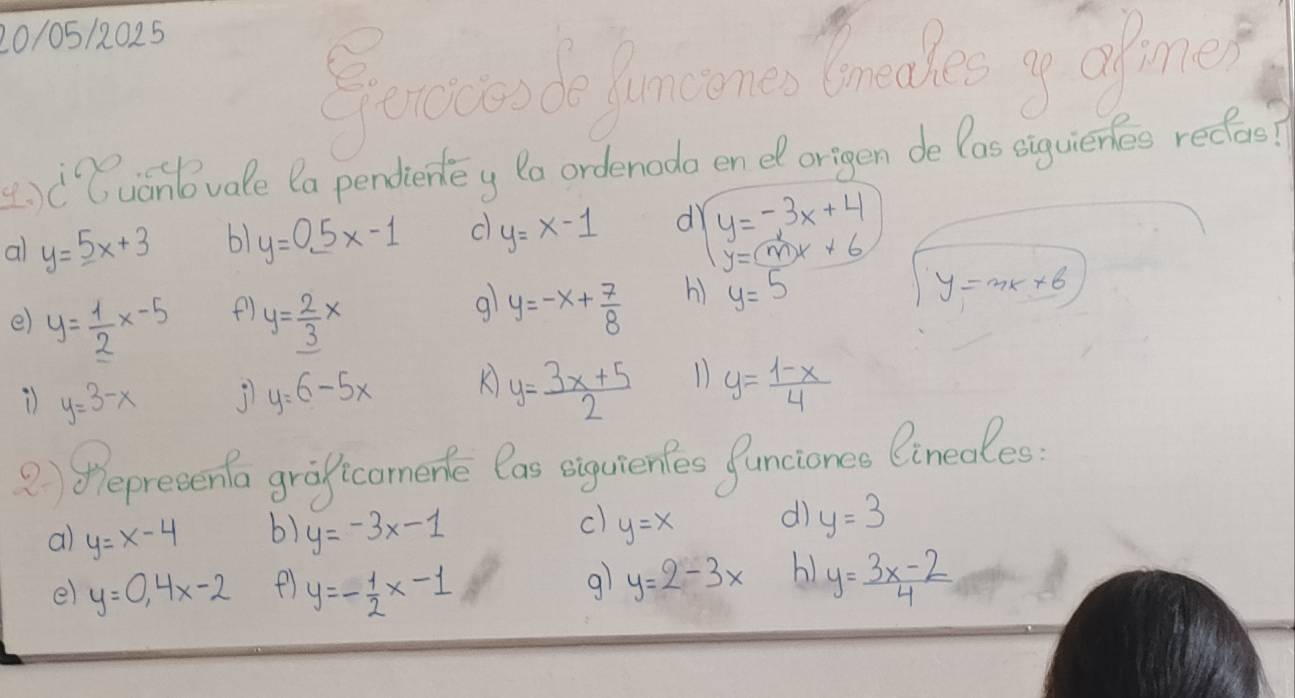 20/05/2025
Ejercicios de funciones lineales y afines
1.) ¿Cuánto vale la pendiente y la ordenada en el origen de las siguientes rectas?
a) y=5x+3 b) y=0,5x-1 c) y=x-1 d) y=-3x+4
y=mx+b
y=mx+b
e) y=1/2x-5 f) y=2/3x g) y=-x+7/8 h) y=5
i) y=3-x j) y=6-5x k) y=3x+5/2 l) y=1-x/4
2.) Representa gráficamente las siguientes funciones lineales:
a) y=x-4 b) y=-3x-1 c) y=x d) y=3
e) y=0,4x-2 f) y=-1/2x-1 g) y=2-3x h) y=3x-2/4